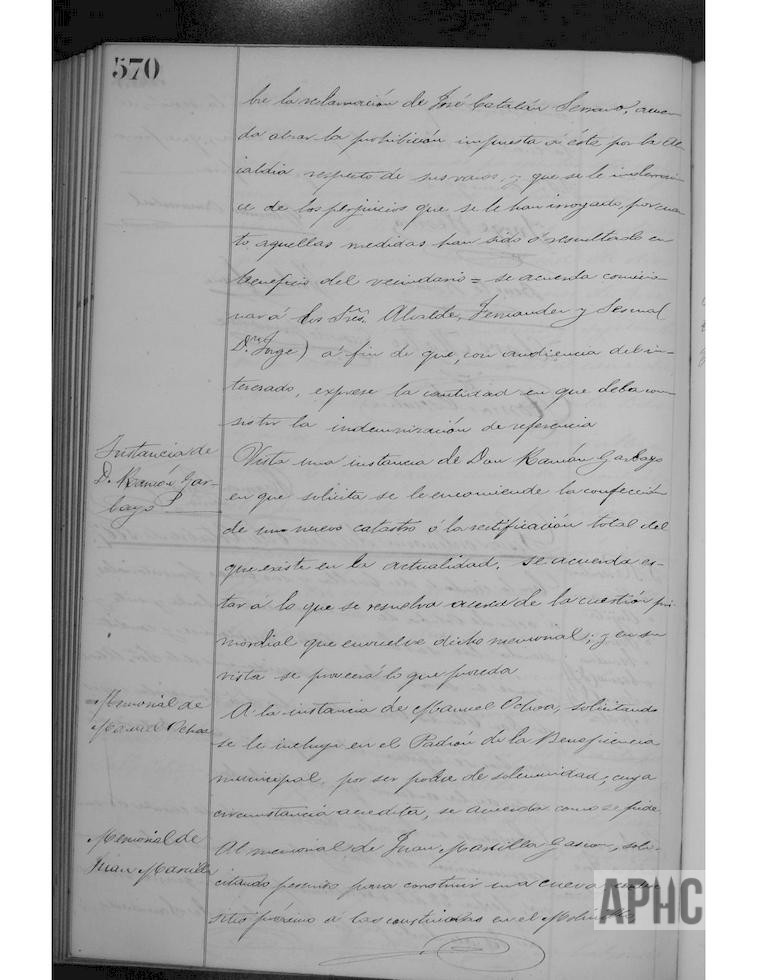 570
bre la reclamación de José Catalán Serrano, acuer-
da alzar la prohibición impuesta á éste por la Al-
caldía respecto de sus vacas, y que se le indemni-
ce de los perjuicios que se le han irrogado, por cuan-
to aquellas medidas han sido ó resultado en
beneficio del vecindario = se acuerda comisio-
nar á los Sres. Alcalde, Fernandez y Sesma
(Dn. Jorge) á fin de que, con audiencia del in-
teresado, exprese la cantidad en que deba con-
sistir la indemnización de referencia
Instancia de
D. Ramón Gar-
bayo
Vista una instancia de Don Ramón Garbayo
en que solicita se le encomiende la confección
de un nuevo catastro ó la rectificación total del
que existe en la actualidad, se acuerda es-
tar á lo que se resuelva acerca de la cuestión pri-
mordial que envuelve dicho memorial; y en su
vista se proveerá lo que proceda
Memorial de
Manuel Ochoa
A la instancia de Manuel Ochoa, solicitando
se le incluya en el Padrón de la Beneficencia
municipal, por ser pobre de solemnidad, cuya
circunstancia acredita, se acuerda como se pide.
Memorial de
Juan Mansilla
Al memorial de Juan Mansilla Gascon, soli-
citando permiso para construir una cueva
sitio próximo á las construidas en el Molinillo
APHC